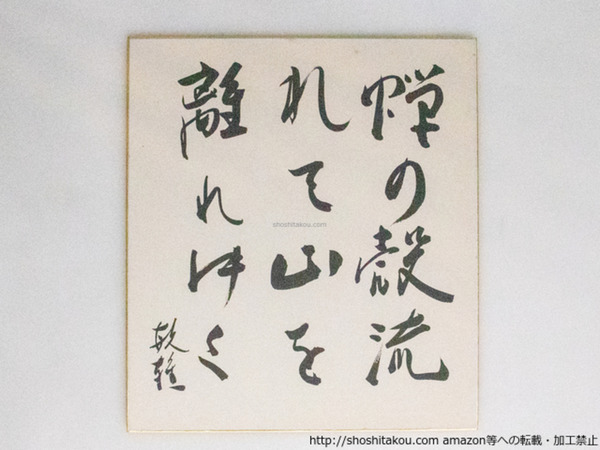 蝉の殻流
れて山を
離れゆく
敏雄
shoshitakou.com
http://shoshitakou.com amazon等への転載・加工禁止